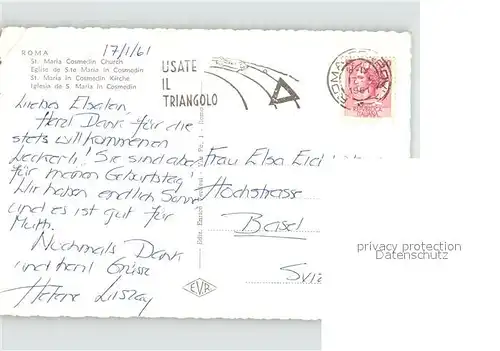 ROMA
St. Maria Cosmedin Church
Eglise de S.te Maria in Cosmedin
St. Maria in Cosmedin Kirche
Iglesia de S. Maria in Cosmedin
17/1/61
USATE
IL
TRIANGOLO
Herzl. Dank für die
stets willkommenen
Leckerli! Sie sind aber
für meinen Geburtstag!
Wir haben endlich Sonne
und es ist gut für
Mutti.
Nochmals Dank
und herzl. Grüsse
Helene
Frau Elsa
Hochstrasse
Basel
Sviz
EVR
privacy protection
Datenschutz